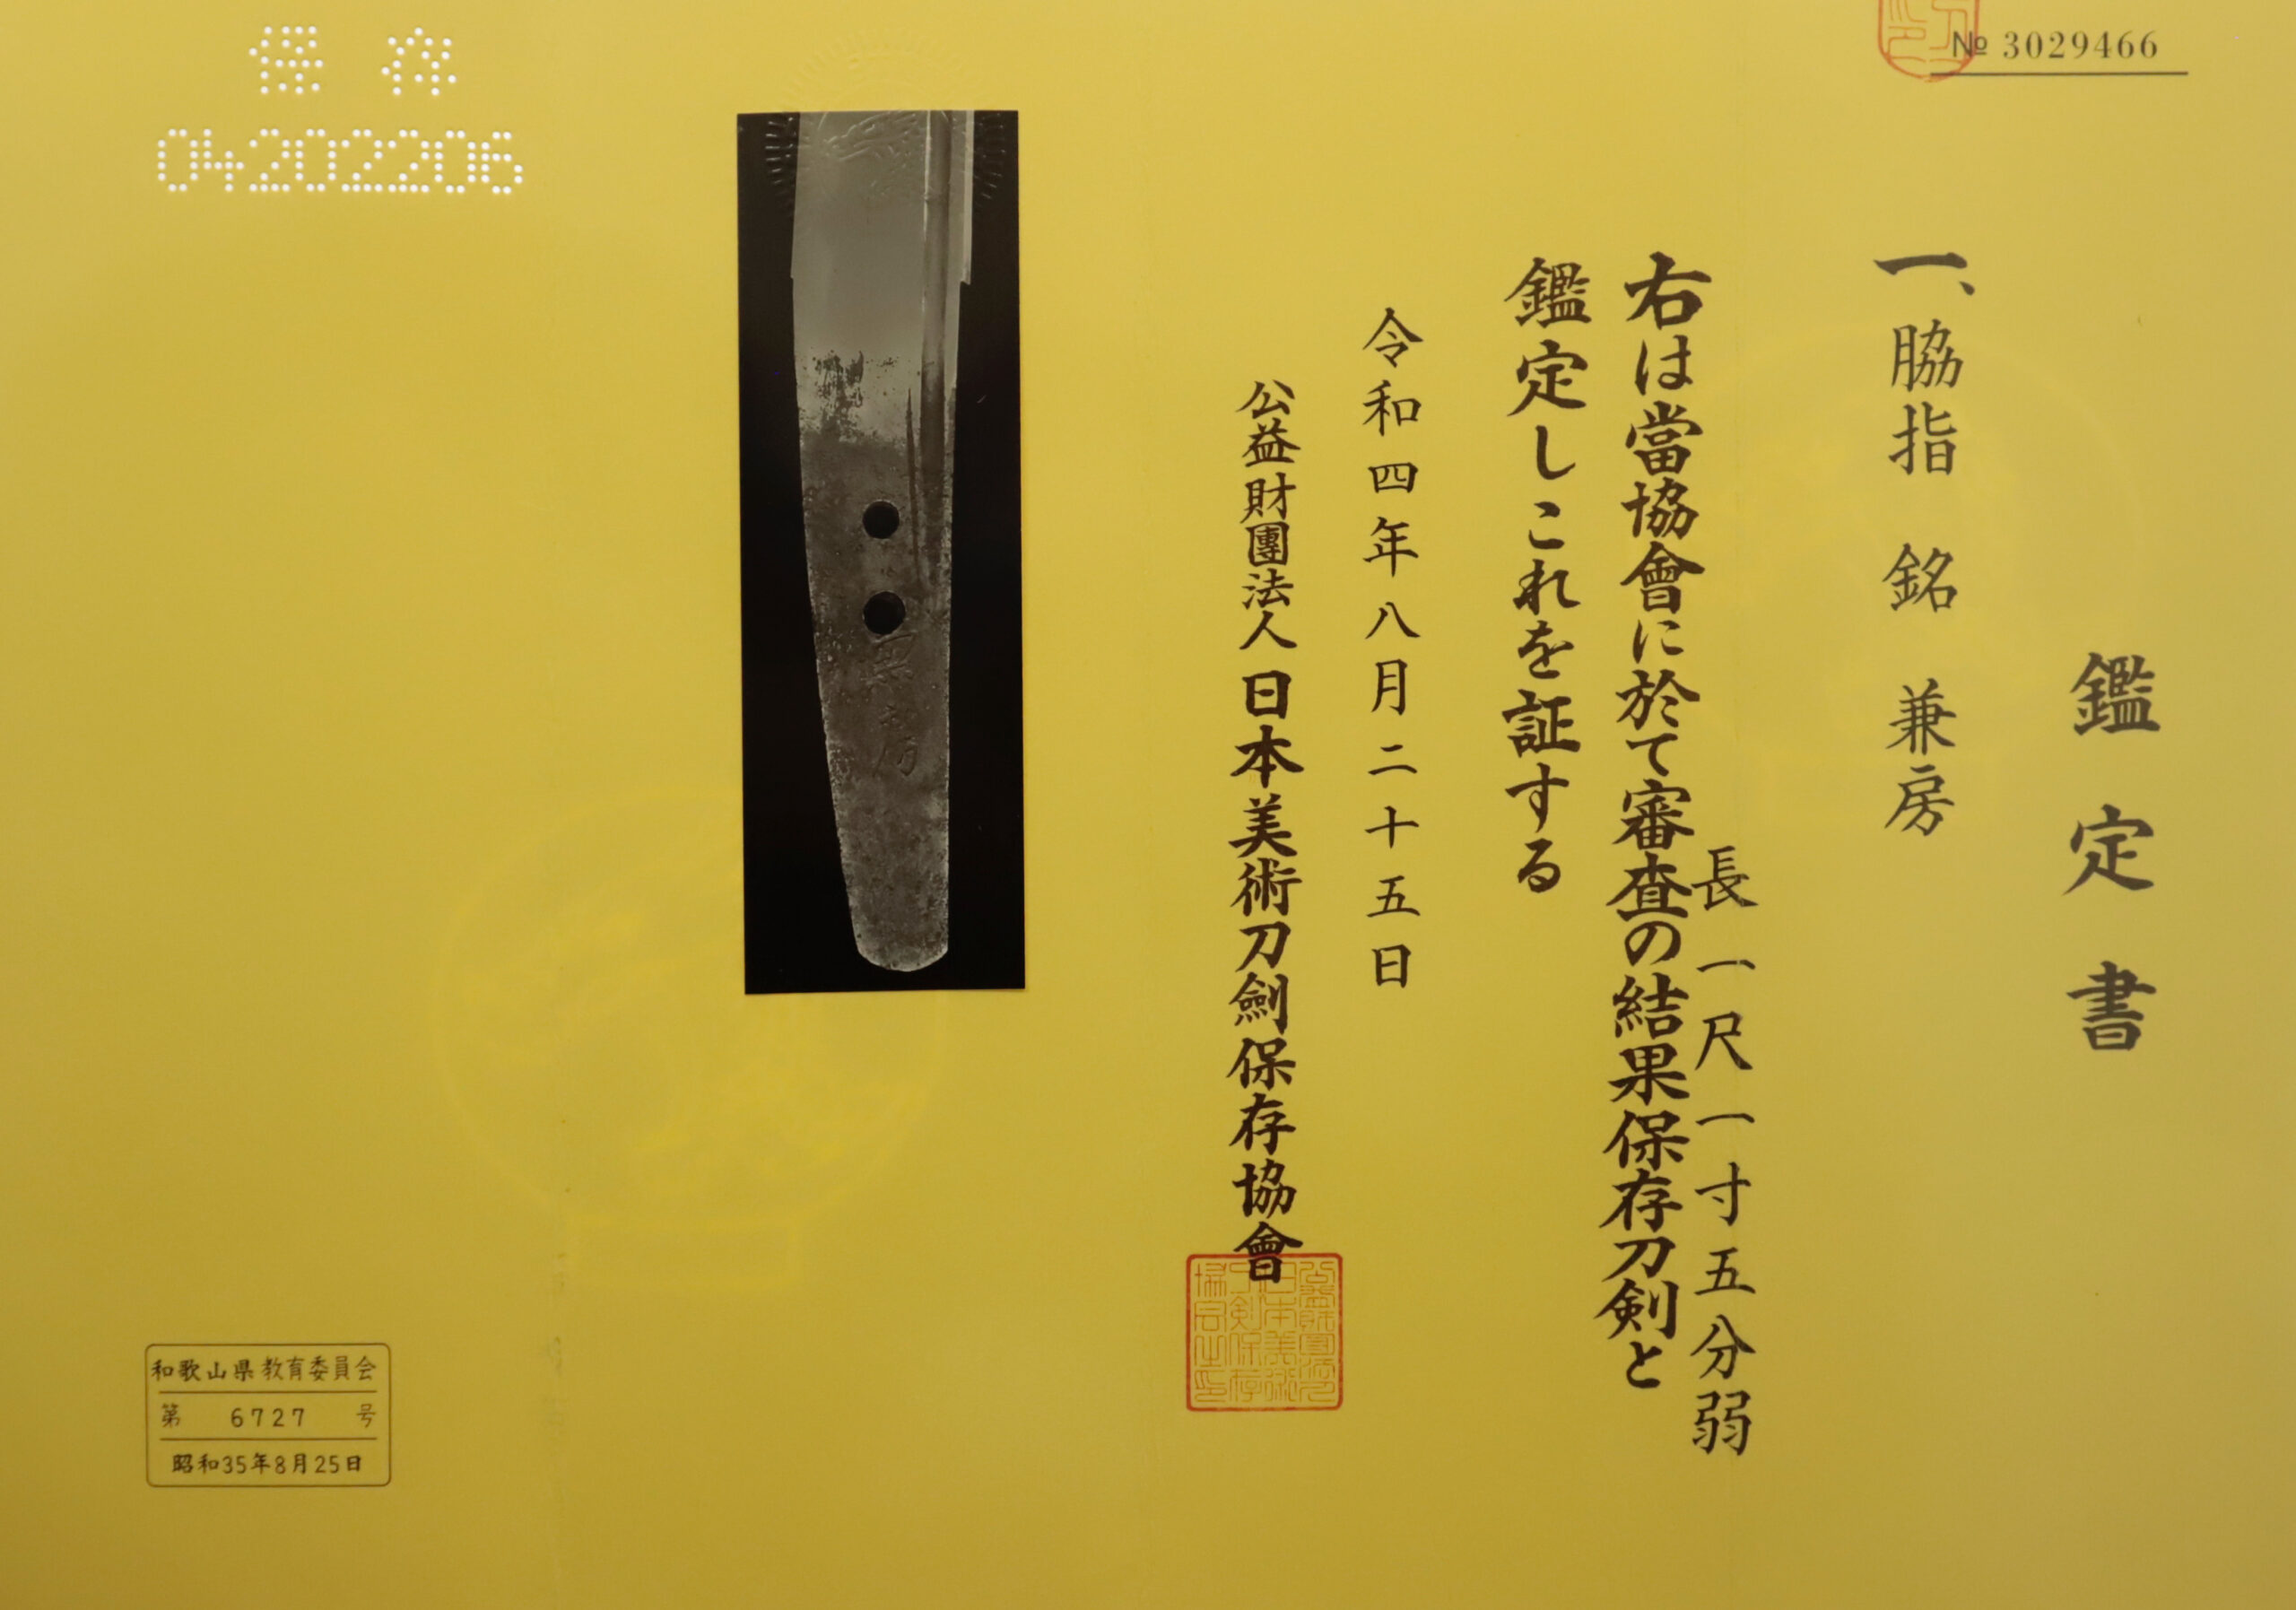 № 3029466
鑑定書
一、脇指 銘 兼房
長一尺一寸五分弱
右は當協會に於て審査の結果保存刀剣と
鑑定しこれを証する
令和四年八月二十五日
公益財團法人日本美術刀劍保存協會
保存
04202206
和歌山県教育委員会
第 6727 号
昭和35年8月25日